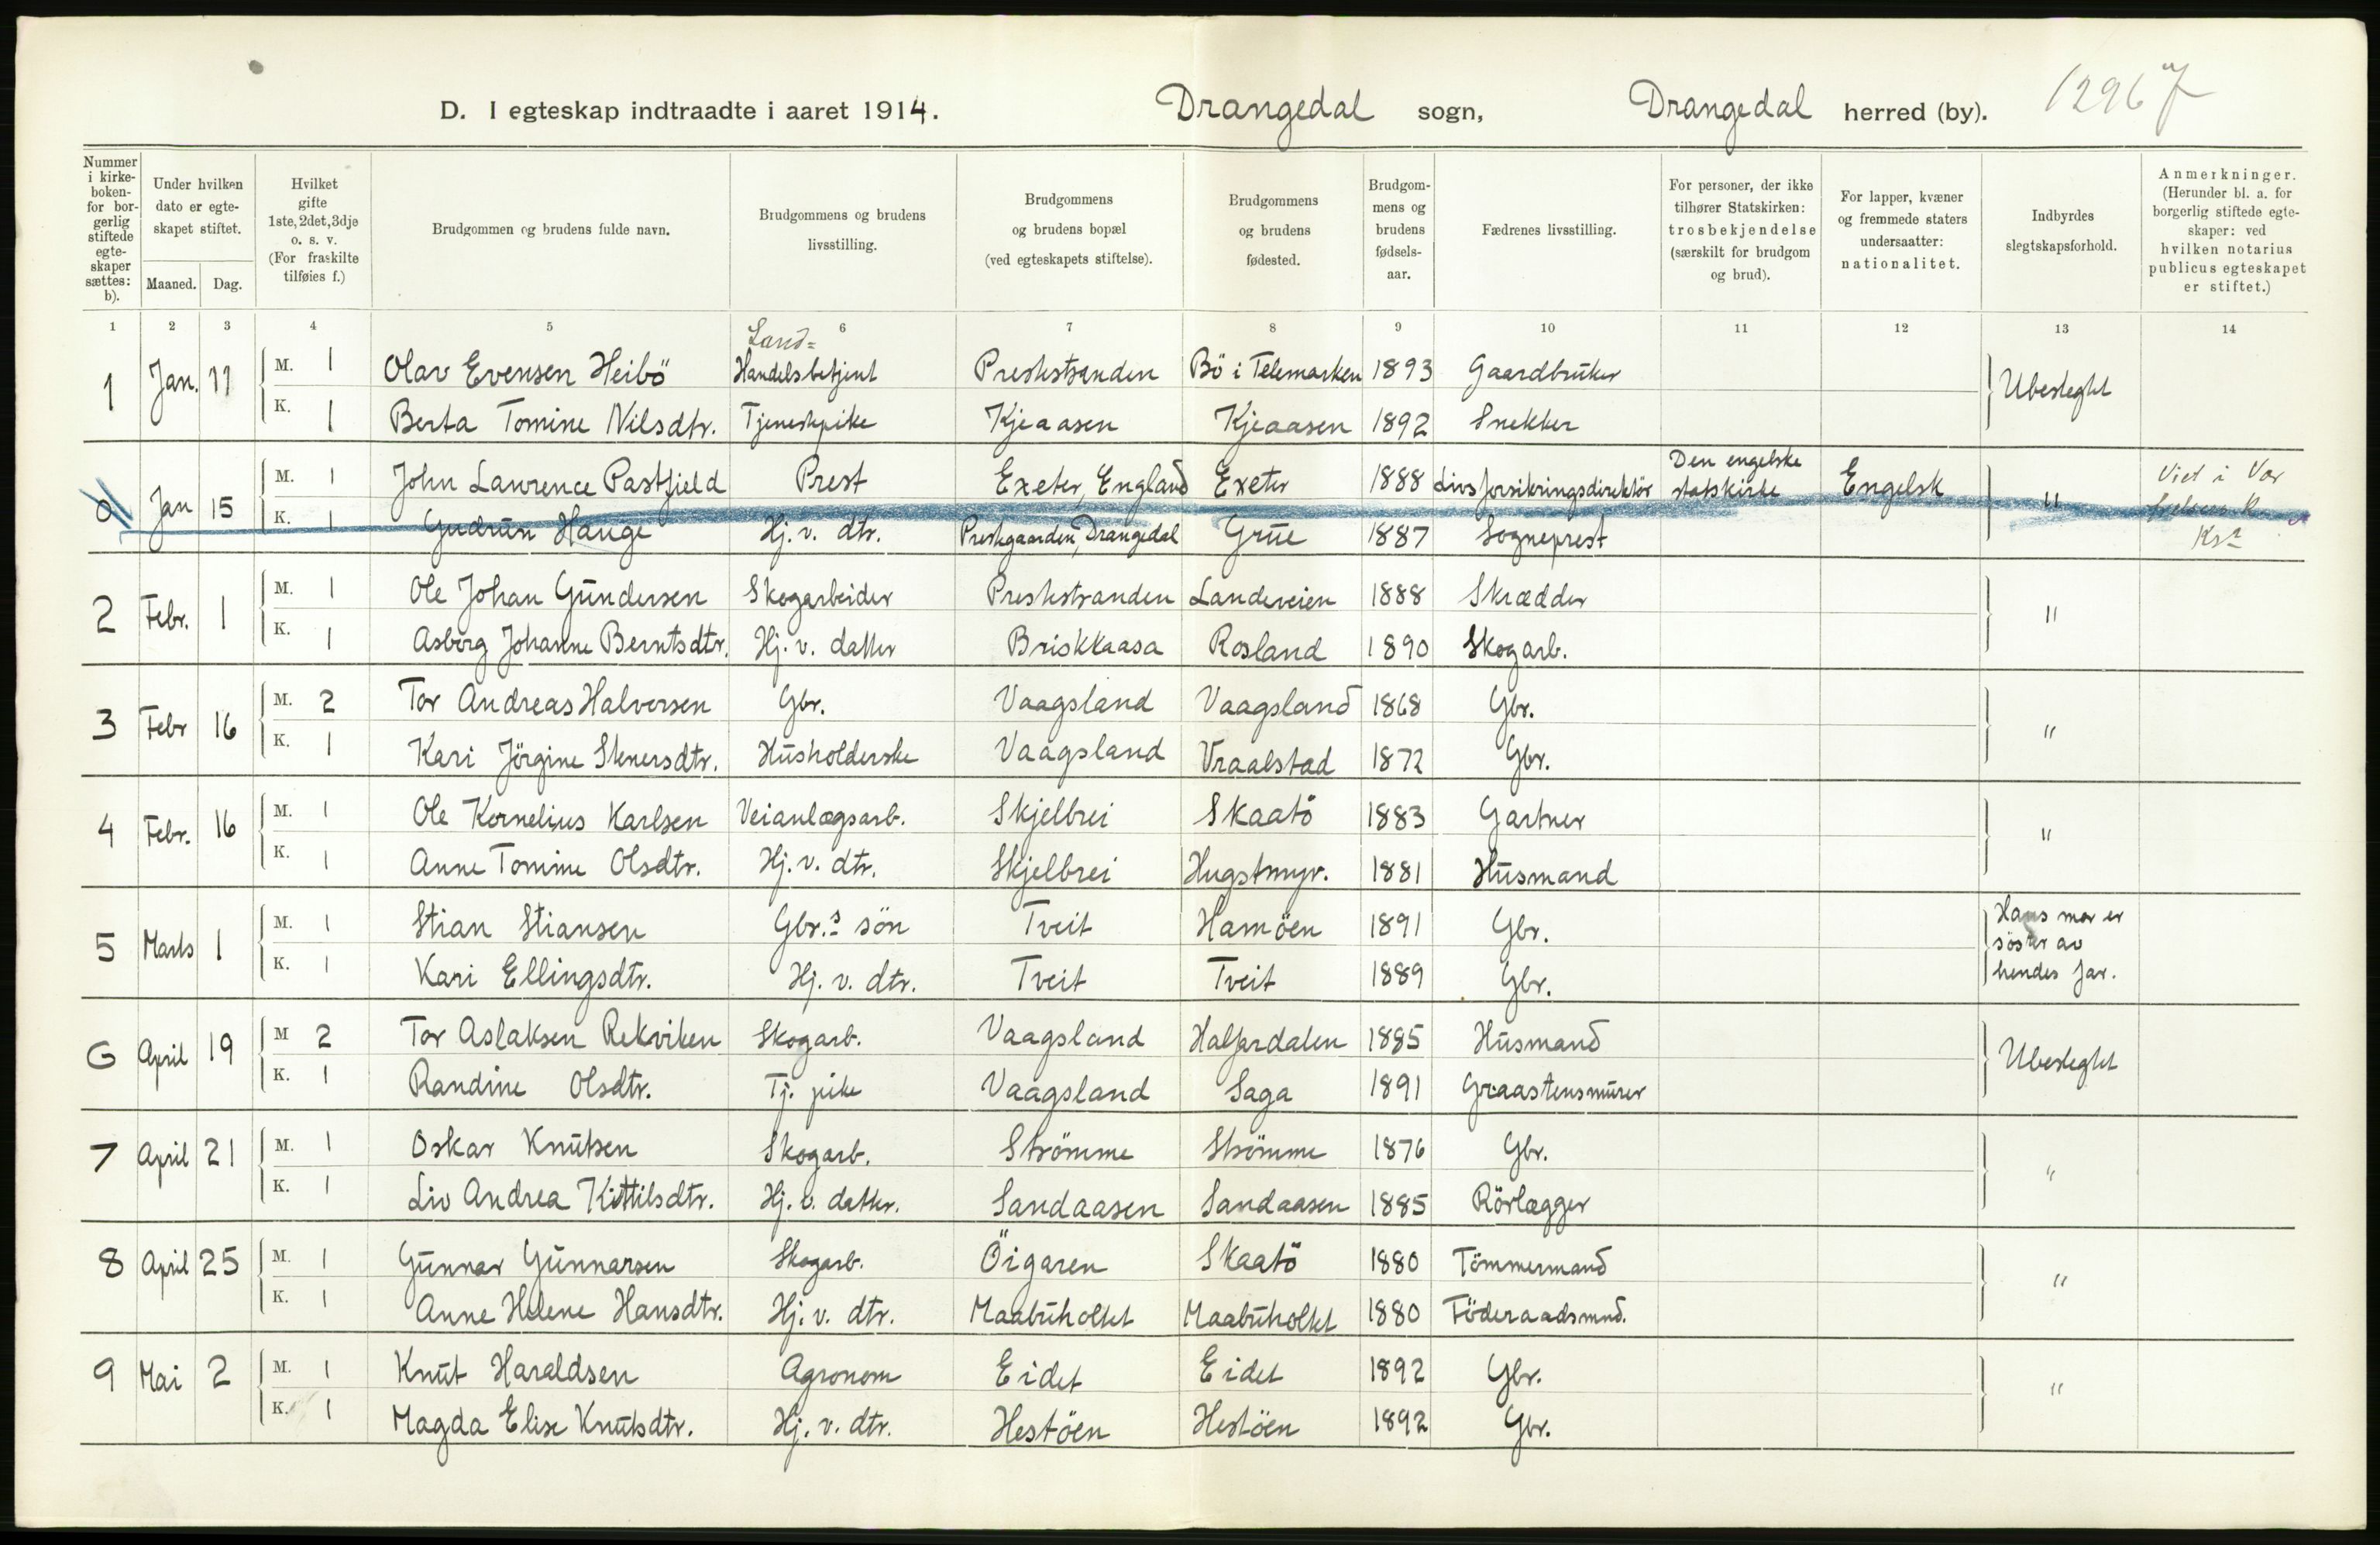 D. I egteskap indtraadte i aaret 1914. Drangedal sogn, Drangedal herred (by). 12967
Nummer i kirkeboken- for borgerlig stiftede egteskaper sættes: b).
Under hvilken dato er egteskapet stiftet.
Maaned. Dag.
Hvilket gifte 1ste, 2det, 3dje o. s. v. (For fraskilte tilføies f.)
Brudgommen og brudens fulde navn.
Brudgommens og brudens livsstilling.
Brudgommens og brudens bopæl (ved egteskapets stiftelse).
Brudgommens og brudens fødested.
Brudgommens og brudens fødselsaar.
Fædrenes livsstilling.
For personer, der ikke tilhører Statskirken: trosbekjendelse (særskilt for brudgom og brud).
For lapper, kvæner og fremmede staters undersaatter: nationalitet.
Indbyrdes slegtskapsforhold.
Anmerkninger. (Herunder bl. a. for borgerlig stiftede egteskaper: ved hvilken notarius publicus egteskapet er stiftet.)
1 2 3 4 5 6 7 8 9 10 11 12 13 14
1 Jan. 11 M. 1 Olav Evensen Heibö Land= Handelsbetjent Prestestranden Bö i Telemarken 1893 Gaardbruker Ubeslegtet
K. 1 Berta Tomine Nilsdtr. Tjenestepike Kjeaasen Kjeaasen 1892 Snekker
Jan 15 M. 1 John Lawrence Pastfield Prest Exeter, England Exeter 1888 Livsforsikringsdirektör Den engelske statskirke Engelsk " Viet i Vor
K. 1 Gudrun Hauge Hj. v. dtr. Prestegaarden, Drangedal Grue 1887 Sogneprest Kra
2 Febr. 1 M. 1 Ole Johan Gundersen Skogarbeider Prestestranden Landeveien 1888 Skrædder "
K. 1 Asborg Johanne Berntsdtr. Hj. v. datter Briskkaasa Rosland 1890 Skogarb.
3 Febr 16 M. 2 Tor Andreas Halvorsen Gbr. Vaagsland Vaagsland 1868 Gbr. "
K. 1 Kari Jörgine Stenersdtr. Husholderske Vaagsland Vraalstad 1872 Gbr.
4 Febr. 16 M. 1 Ole Kornelius Karlsen Veianlægsarb. Skjelbrei Skaatö 1883 Gartner "
K. 1 Anne Tomine Olsdtr. Hj. v. dtr. Skjelbrei Hugstmyr. 1881 Husmand
5 Marts 1 M. 1 Stian Stiansen Gbr.s sön Tveit Hamöen 1891 Gbr. Hans mor er söster av hendes far.
K. 1 Kari Ellingsdtr. Hj. v. dtr. Tveit Tveit 1889 Gbr.
6 April 19 M 2 Tor Aslaksen Rekviken Skogarb. Vaagsland Halfardalen 1885 Husmand Ubeslegtet
K. 1 Randine Olsdtr. Tj. pike Vaagsland Saga 1891 Graastensmurer
7 April 21 M. 1 Oskar Knutsen Skogarb. Strömme Strömme 1876 Gbr. "
K. 1 Liv Andrea Kittilsdtr. Hj. v. datter. Sandaasen Sandaasen 1885 Rörlægger
8 April 25 M. 1 Gunnar Gunnarsen Skogarb. Öigaren Skaatö 1880 Tömmermand "
K. 1 Anne Helene Hansdtr. Hj. v. dtr. Maabuholtet Maabuholtet 1880 Föderaadsmnd.
9 Mai 2 M. 1 Knut Haraldsen Agronom Eidet Eidet 1892 Gbr. "
K. 1 Magda Elise Knutsdtr. Hj. v. dtr. Hestöen Hestöen 1892 Gbr.